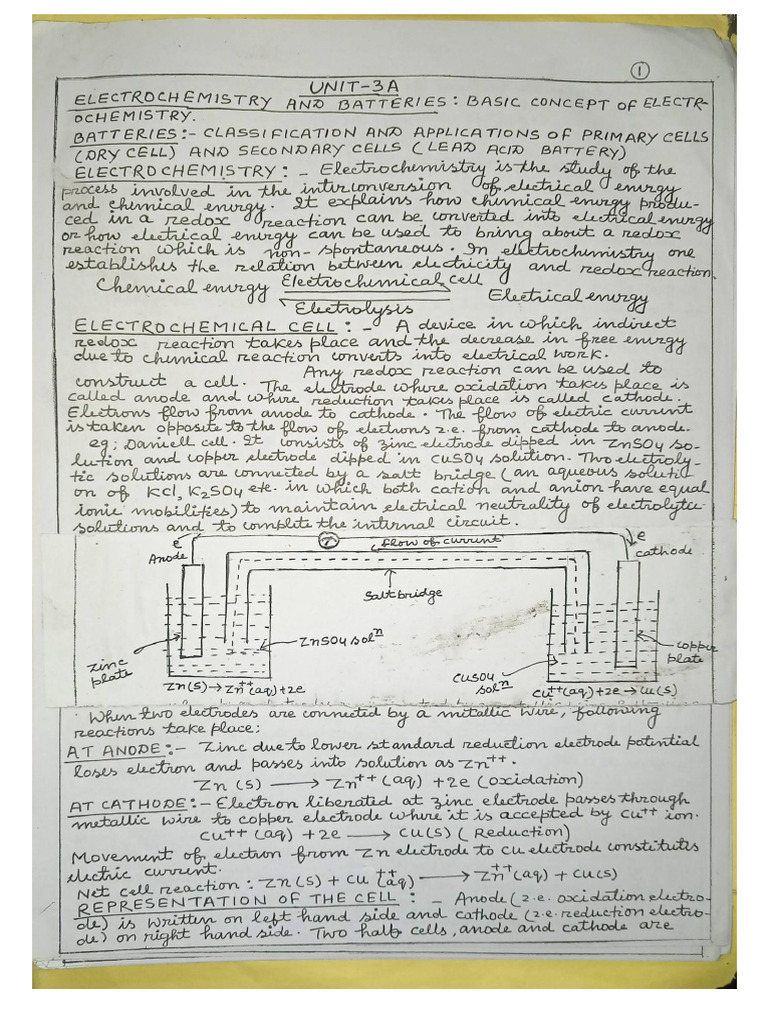 1
UNIT-3A
ELECTROCHEMISTRY AND BATTERIES: BASIC CONCEPT OF ELECTR-
OCHEMISTRY.
BATTERIES:- CLASSIFICATION AND APPLICATIONS OF PRIMARY CELLS
(DRY CELL) AND SECONDARY CELLS (LEAD ACID BATTERY)
ELECTROCHEMISTRY: - Electrochemistry is the study of the
process involved in the interconversion of electrical energy
and chemical energy. It explains how chemical energy produ-
ced in a redox reaction can be converted into electrical energy
or how electrical energy can be used to bring about a redox
reaction which is non-spontaneous. In electrochemistry one
establishes the relation between electricity and redox reaction.
Chemical energy Electrochemical cell Electrical energy
Electrolysis
ELECTROCHEMICAL CELL: - A device in which indirect
redox reaction takes place and the decrease in free energy
due to chemical reaction converts into electrical work.
Any redox reaction can be used to
construct a cell. The electrode where oxidation takes place is
called anode and where reduction takes place is called cathode.
Electrons flow from anode to cathode. The flow of electric current
is taken opposite to the flow of electrons i.e. from cathode to anode.
eg; Daniell cell. It consists of zinc eletrode dipped in ZnSO4 so-
lution and copper eletrode dipped in CuSO4 solution. Two electroly-
tic solutions are connected by a salt bridge (an aqueous soluti-
on of KCl, K2SO4 etc. in which both cation and anion have equal
ionic mobilities) to maintain electrical neutrality of electrolytic
solutions and to complete the internal circuit.
e flow of current e
Anode cathode
Salt bridge
ZnSO4 solⁿ
zinc
plate
copper
plate
CuSO4
solⁿ
Zn(s)→Zn⁺⁺(aq)+2e
Cu⁺⁺(aq)+2e→Cu(s)
When two electrodes are connected by a metallic wire, following
reactions take place:
AT ANODE:- Zinc due to lower standard reduction eletrode potential
loses electron and passes into solution as Zn⁺⁺.
Zn (s) ⟶ Zn⁺⁺ (aq) + 2e (oxidation)
AT CATHODE:- Electron liberated at zinc electrode passes through
metallic wire to copper electrode where it is accepted by Cu⁺⁺ ion.
Cu⁺⁺ (aq) + 2e ⟶ Cu(s) (Reduction)
Movement of electron from Zn eletrode to Cu eletrode constitutes
electric current.
Net cell reaction: Zn(s) + Cu⁺⁺(aq) ⟶ Zn⁺⁺(aq) + Cu(s)
REPRESENTATION OF THE CELL: - Anode (i.e. oxidation electro-
de) is written on left hand side and cathode (i.e. reduction electro-
de) on right hand side. Two half cells, anode and cathode are